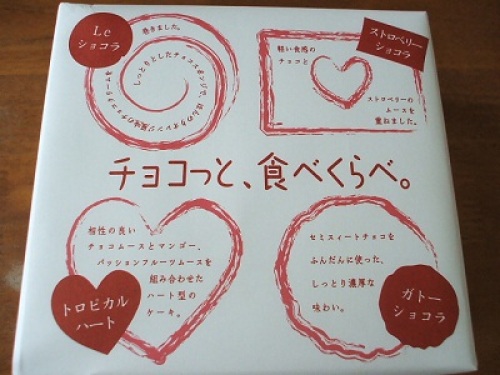 Le
ショコラ
巻きました。
しっとりとしたチョコスポンジで、ほんのりオレンジ風味のチョコクリームを
ストロベリー
ショコラ
軽い食感の
チョコと
ストロベリーの
ムースを
重ねました。
チョコっと、食べくらべ。
相性の良い
チョコムースとマンゴー、
パッションフルーツムースを
組み合わせた
ハート型の
ケーキ。
トロピカル
ハート
セミスィートチョコを
ふんだんに使った、
しっとり濃厚な
味わい。
ガトー
ショコラ